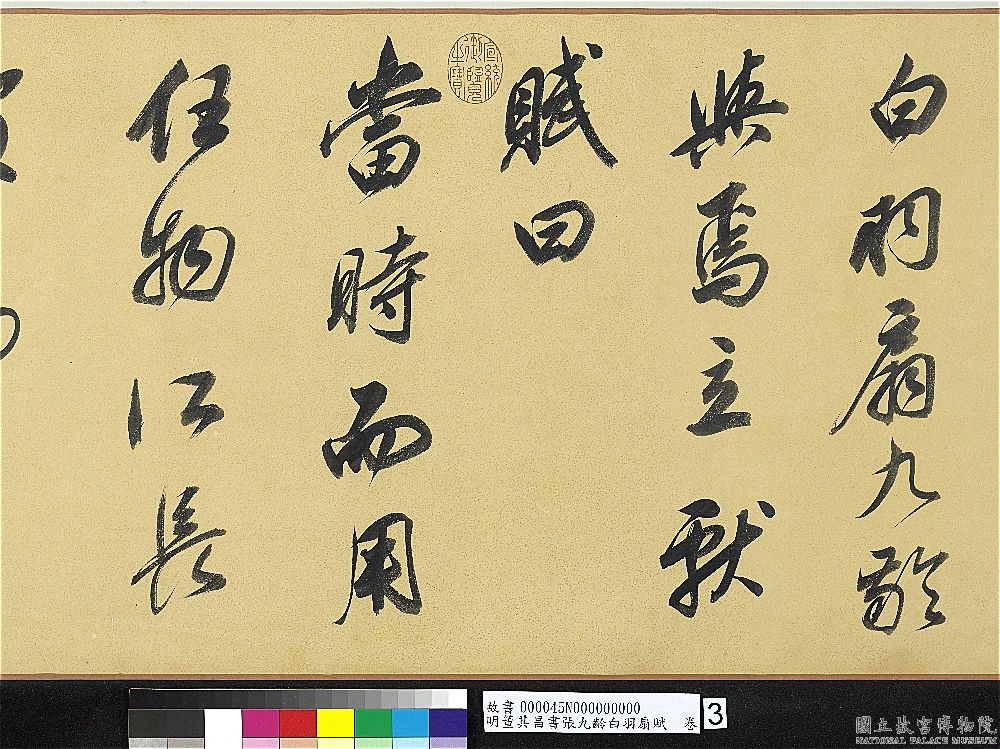 白羽扇九齡
與焉立獻
賦曰
當時而用
任物所長
宣統御覽之寶
故書 000045N000000000
明董其昌書張九齡白羽扇賦 卷
3
國立故宮博物院
NATIONAL PALACE MUSEUM